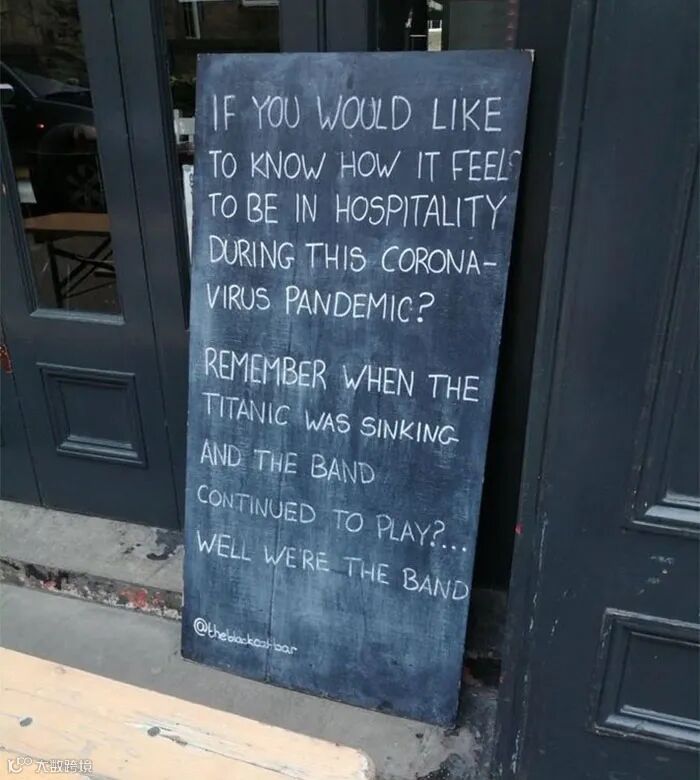 IF YOU WOULD LIKE
TO KNOW HOW IT FEELS
TO BE IN HOSPITALITY
DURING THIS CORONA-
VIRUS PANDEMIC?
REMEMBER WHEN THE
TITANIC WAS SINKING
AND THE BAND
CONTINUED TO PLAY?...
WELL WE'RE THE BAND
@theblackcatbar
大数跨境